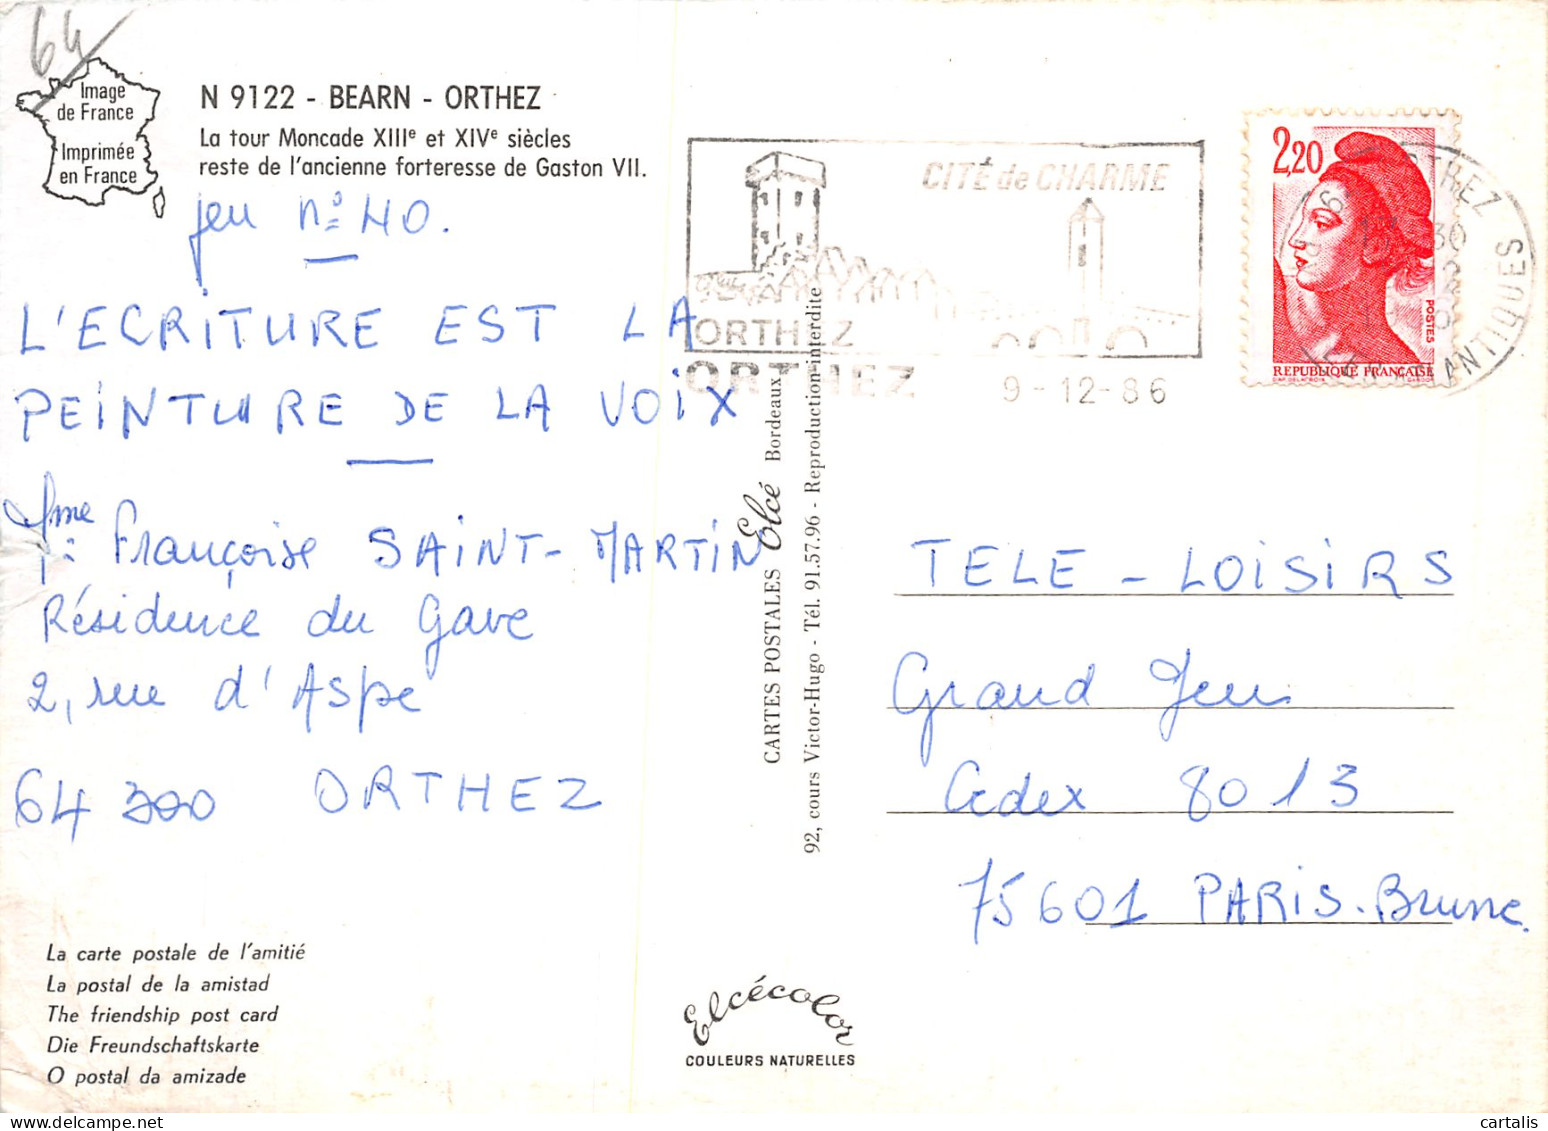 64
Image
de France
Imprimée
en France
N 9122 - BEARN - ORTHEZ
La tour Moncade XIIIe et XIVe siècles
reste de l'ancienne forteresse de Gaston VII.
jeu n° 40.
L'ECRITURE EST LA
PEINTURE DE LA VOIX
Mme Françoise SAINT-MARTIN
Résidence du Gave
2, rue d'Aspe
64 300 ORTHEZ
La carte postale de l'amitié
La postal de la amistad
The friendship post card
Die Freundschaftskarte
O postal da amizade
CARTES POSTALES Elcé Bordeaux
92, cours Victor-Hugo - Tél. 91.57.96 - Reproduction interdite
Elcécolor
COULEURS NATURELLES
CITÉ de CHARME
ORTHEZ
ORTHEZ
9-12-86
2,20
POSTES
REPUBLIQUE FRANÇAISE
ANTIQUES
TELE - LOISIRS
Grand Jeu
Cedex 8013
75601 PARIS-Brune.
cartalis